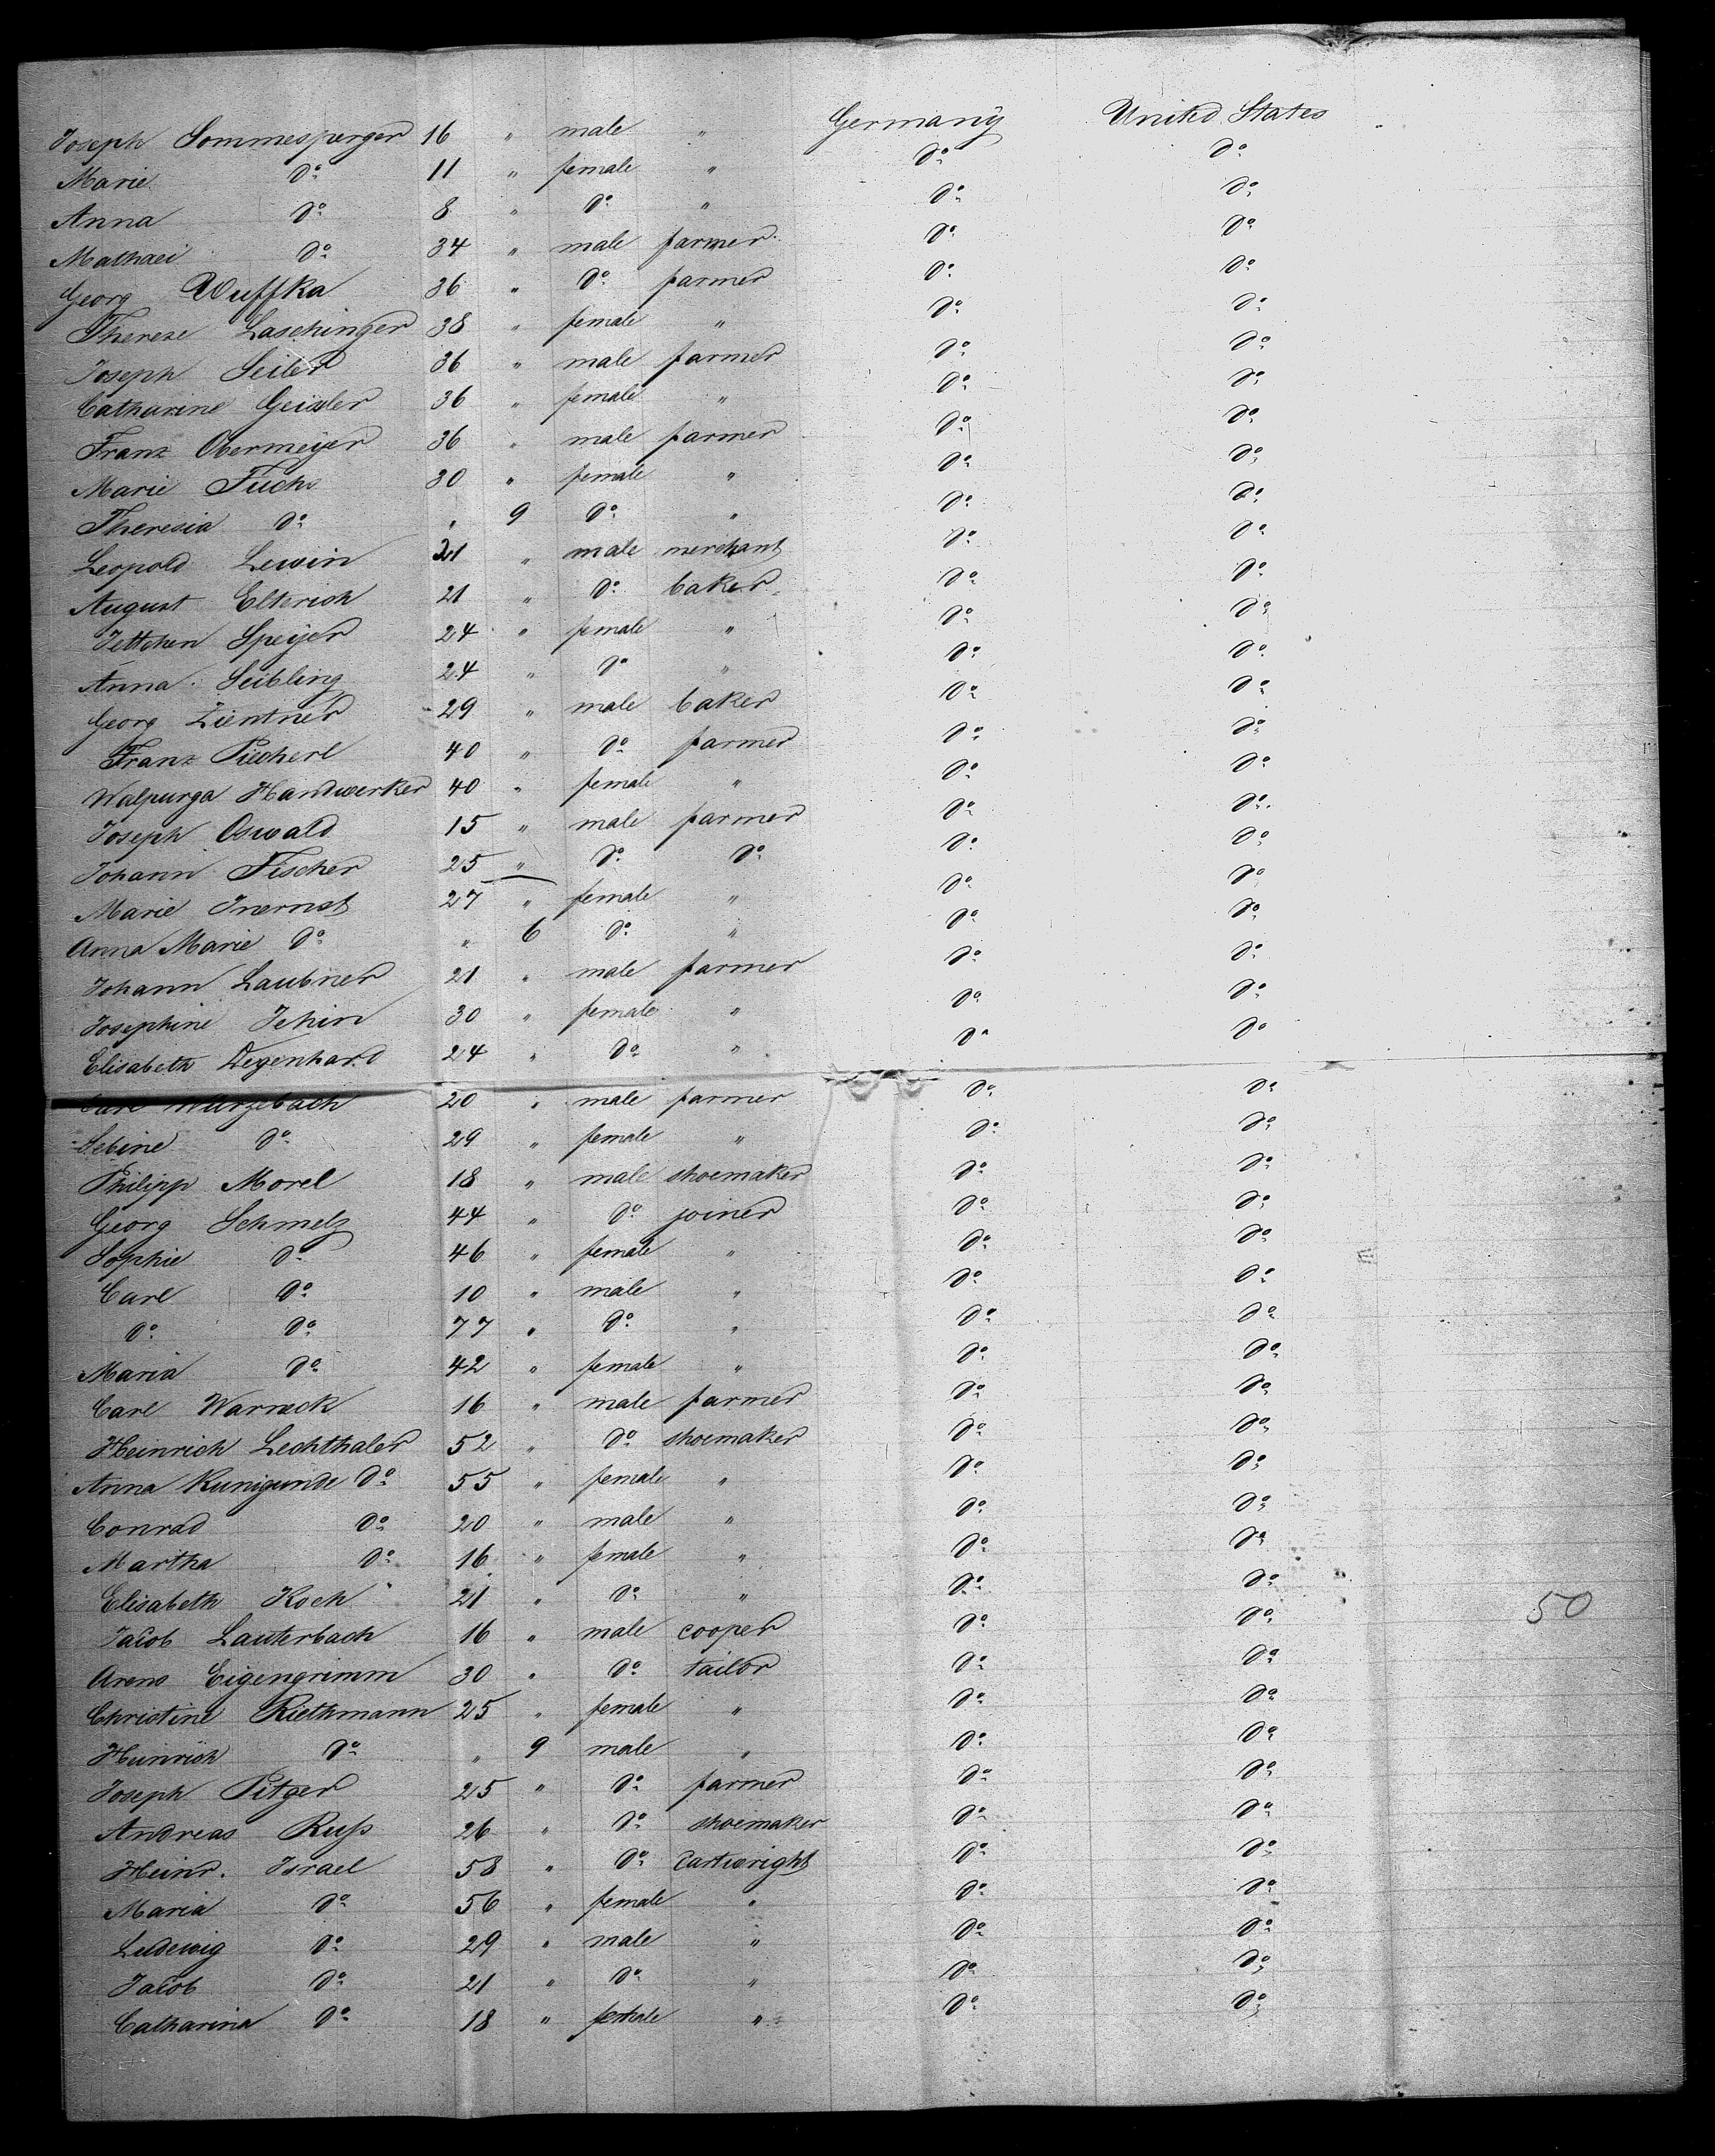 Joseph Sommesperger 16 " male " Germany United States
Marie do 11 " female " do do
Anna do 8 " do " do do
Mathaei do 34 " male farmer do do
Georg Wuffka 36 " do farmer do do
Therese Laschinger 38 " female " do do
Joseph Seiler 36 " male farmer do do
Catharine Geissler 36 " female " do do
Franz Obermeijer 36 " male farmer do do
Marie Fuchs 30 " female " do do
Theresia do " 9 do " do do
Leopold Lewin 21 " male merchant do do
August Elterich 21 " do baker do do
Jettchen Speijer 24 " female " do do
Anna Seibling 24 " do " do do
Georg Zientner 29 " male baker do do
Franz 40 " do farmer do do
Walpurga Handwerker 40 " female " do do
Joseph Oswald 15 " male farmer do do
Johann Fischer 25 " do do do do
Marie Inernst 27 " female " do do
Anna Marie do " 6 do " do do
Johann Laubner 21 " male farmer do do
Josephine Jehin 30 " female " do do
Elisabeth Degenhard 24 " do " do do
Carl Wurzebach 20 " male farmer do do
Sebine do 29 " female " do do
Philipp Morel 18 " male shoemaker do do
Georg Schmelz 44 " do joiner do do
Sophie do 46 " female " do do
Carl do 10 " male " do do
do do 77 " do " do do
Maria do 42 " female " do do
Carl Warneck 16 " male farmer do do
Heinrich Lechthaler 52 " do shoemaker do do
Anna Kunigunde do 55 " female " do do
Conrad do 20 " male " do do
Martha do 16 " female " do do
Elisabeth Koch 21 " do " do do
Jacob Lauterbach 16 " male cooper do do 50
Arens Eigengrimm 30 " do tailor do do
Christine Riethmann 25 " female " do do
Heinrich do " 9 male " do do
Joseph Pitger 25 " do farmer do do
Andreas Ruß 26 " do shoemaker do do
Heinr. Israel 58 " do cartwright do do
Maria do 56 " female " do do
Ludewig do 29 " male " do do
Jacob do 21 " do " do do
Catharina do 18 " female " do do